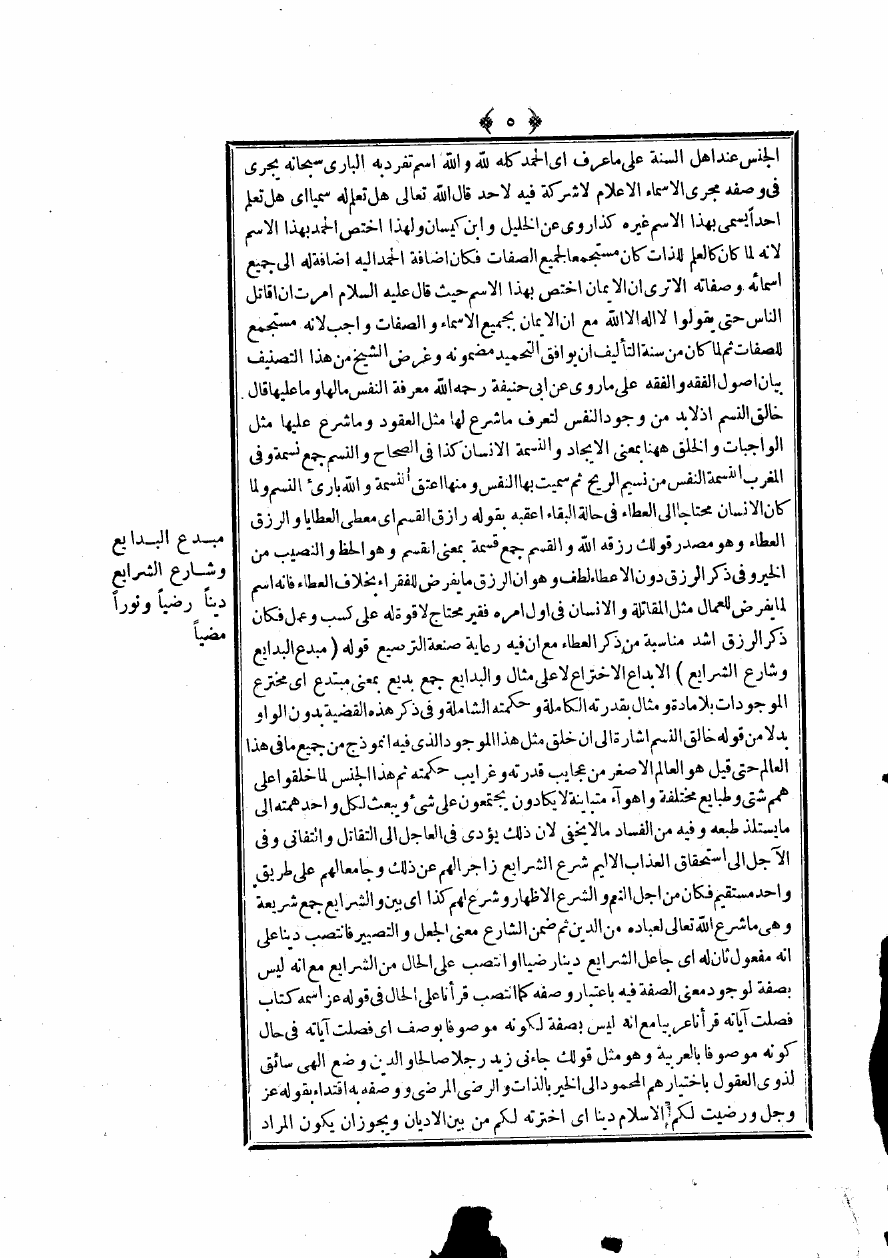 ﴿ ٥ ﴾
الجنس عند اهل السنة على ما عرف اى الحمد كله لله والله اسم تفرد به البارى سبحانه يجرى
فى وصفه مجرى الاسماء الاعلام لا شركة فيه لاحد قال الله تعالى هل تعلم له سميا اى هل تعلم
احدا يسمى بهذا الاسم غيره كذا روى عن الخليل وابن كيسان ولهذا اختص الحمد بهذا الاسم
لانه لما كان كالعلم للذات كان مستجمعا لجميع الصفات فكان اضافة الحمد اليه اضافة له الى جميع
اسمائه وصفاته الا ترى ان الايمان اختص بهذا الاسم حيث قال عليه السلام امرت ان اقاتل
الناس حتى يقولوا لا اله الا الله مع ان الايمان بجميع الاسماء والصفات واجب لانه مستجمع
للصفات ثم لما كان من سنة التأليف ان يوافق التحميد مضمونه وغرض الشيخ من هذا التصنيف
بيان اصول الفقه والفقه على ما روى عن ابى حنيفة رحمه الله معرفة النفس مالها وما عليها قال
خالق النسم اذ لابد من وجود النفس لتعرف ما شرع لها مثل العقود وما شرع عليها مثل
الواجبات والخلق ههنا بمعنى الايجاد والنسمة الانسان كذا فى الصحاح والنسم جمع نسمة وفى
المغرب النسمة النفس من نسيم الريح ثم سميت بها النفس ومنها اعتق النسمة والله بارئ النسم ولما
كان الانسان محتاجا الى العطاء فى حالة البقاء اعقبه بقوله رازق القسم اى معطى العطايا والرزق
العطاء وهو مصدر قولك رزقه الله والقسم جمع قسمة بمعنى القسم وهو الحظ والنصيب من
الخير وفى ذكر الرزق دون الاعطاء لطف وهو ان الرزق ما يفرض للفقراء بخلاف العطاء فانه اسم
لما يفرض للعمال مثل المقاتلة والانسان فى اول امره فقير محتاج لا قوة له على كسب وعمل فكان
ذكر الرزق اشد مناسبة من ذكر العطاء مع ان فيه رعاية صنعة الترصيع قوله ( مبدع البدايع
وشارع الشرايع ) الابداع الاختراع لا على مثال والبدايع جمع بديع بمعنى مبتدع اى مخترع
الموجودات بلا مادة ومثال بقدرته الكاملة وحكمته الشاملة وفى ذكر هذه القضية بدون الواو
بدلا من قوله خالق النسم اشارة الى ان خلق مثل هذا الموجود الذى فيه انموذج من جميع ما فى هذا
العالم حتى قيل هو العالم الاصغر من عجايب قدرته وغرايب حكمته ثم هذا الجنس لما خلقوا على
همم شتى وطبايع مختلفة واهوآء متباينة لا يكادون يجتمعون على شئ ويبعث لكل واحد همته الى
ما يستلذ طبعه وفيه من الفساد ما لا يخفى لان ذلك يؤدى فى العاجل الى التقاتل والتفانى وفى
الآجل الى استحقاق العذاب الاليم شرع الشرايع زاجرا لهم عن ذلك وجامعا لهم على طريق
واحد مستقيم فكان من اجل النعم والشرع الاظهار وشرع لهم كذا اى بين والشرايع جمع شريعة
وهى ما شرع الله تعالى لعباده من الدين ثم ضمن الشارع معنى الجعل والتصيير فانتصب دينا على
انه مفعول ثان له اى جاعل الشرايع دينا رضيا او انتصب على الحال من الشرايع مع انه ليس
بصفة لوجود معنى الصفة فيه باعتبار وصفه كما انتصب قرأنا على الحال فى قوله عز اسمه كتاب
فصلت آياته قرأنا عربيا مع انه ليس بصفة لكونه موصوفا بوصف اى فصلت آياته فى حال
كونه موصوفا بالعربية وهو مثل قولك جاءنى زيد رجلا صالحا والدين وضع الهى سائق
لذوى العقول باختيارهم المحمود الى الخير بالذات والرضى المرضى ووصفه به اقتداء بقوله عز
وجل ورضيت لكم الاسلام دينا اى اخترته لكم من بين الاديان ويجوز ان يكون المراد
مبدع البدايع
وشارع الشرايع
ديناً رضياً ونوراً
مضياً